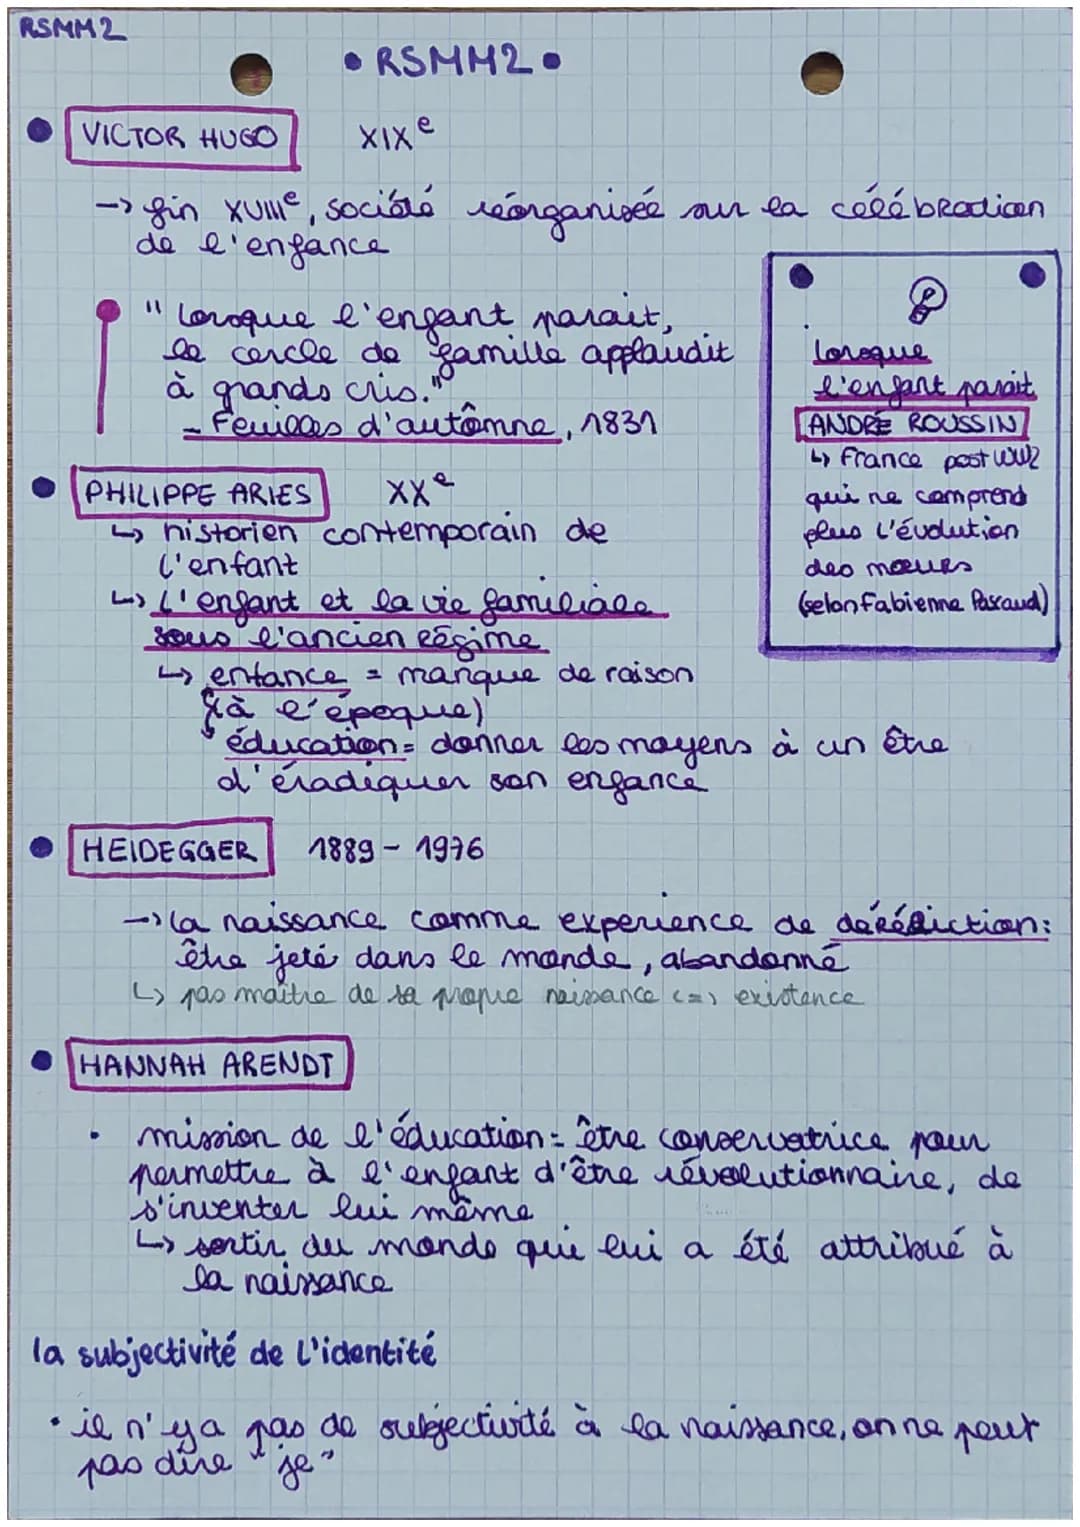 RSMM2
• RSMM2 •
• VICTOR HUGO XIXe
→ fin XVIIIe, société réorganisée sur la célébration
de l'enfance
" Lorsque l'enfant parait,
le cercle de famille applaudit
à grands cris."
- Feuilles d'autômne, 1831
Lorsque
l'enfant parait
ANDRÉ ROUSSIN
↳ France post WW2
qui ne comprend
plus l'évolution
des mœurs
(selon Fabienne Pascaud)
• PHILIPPE ARIES XXe
↳ historien contemporain de
l'enfant
↳ L'enfant et la vie familiale
sous l'ancien régime
↳ enfance = manque de raison
(à l'époque)
• éducation = donner les moyens à un être
d'éradiquer son enfance
• HEIDEGGER 1889 - 1976
→ la naissance comme experience de déréliction:
être jeté dans le monde, abandonné
↳ pas maître de sa propre naissance <=> existence
• HANNAH ARENDT
• mission de l'éducation = être conservatrice pour
permettre à l'enfant d'être révolutionnaire, de
s'inventer lui même
↳ sortir du monde qui lui a été attribué à
la naissance
la subjectivité de l'identité
• il n'y a pas de subjectivité à la naissance, on ne peut
pas dire "je"